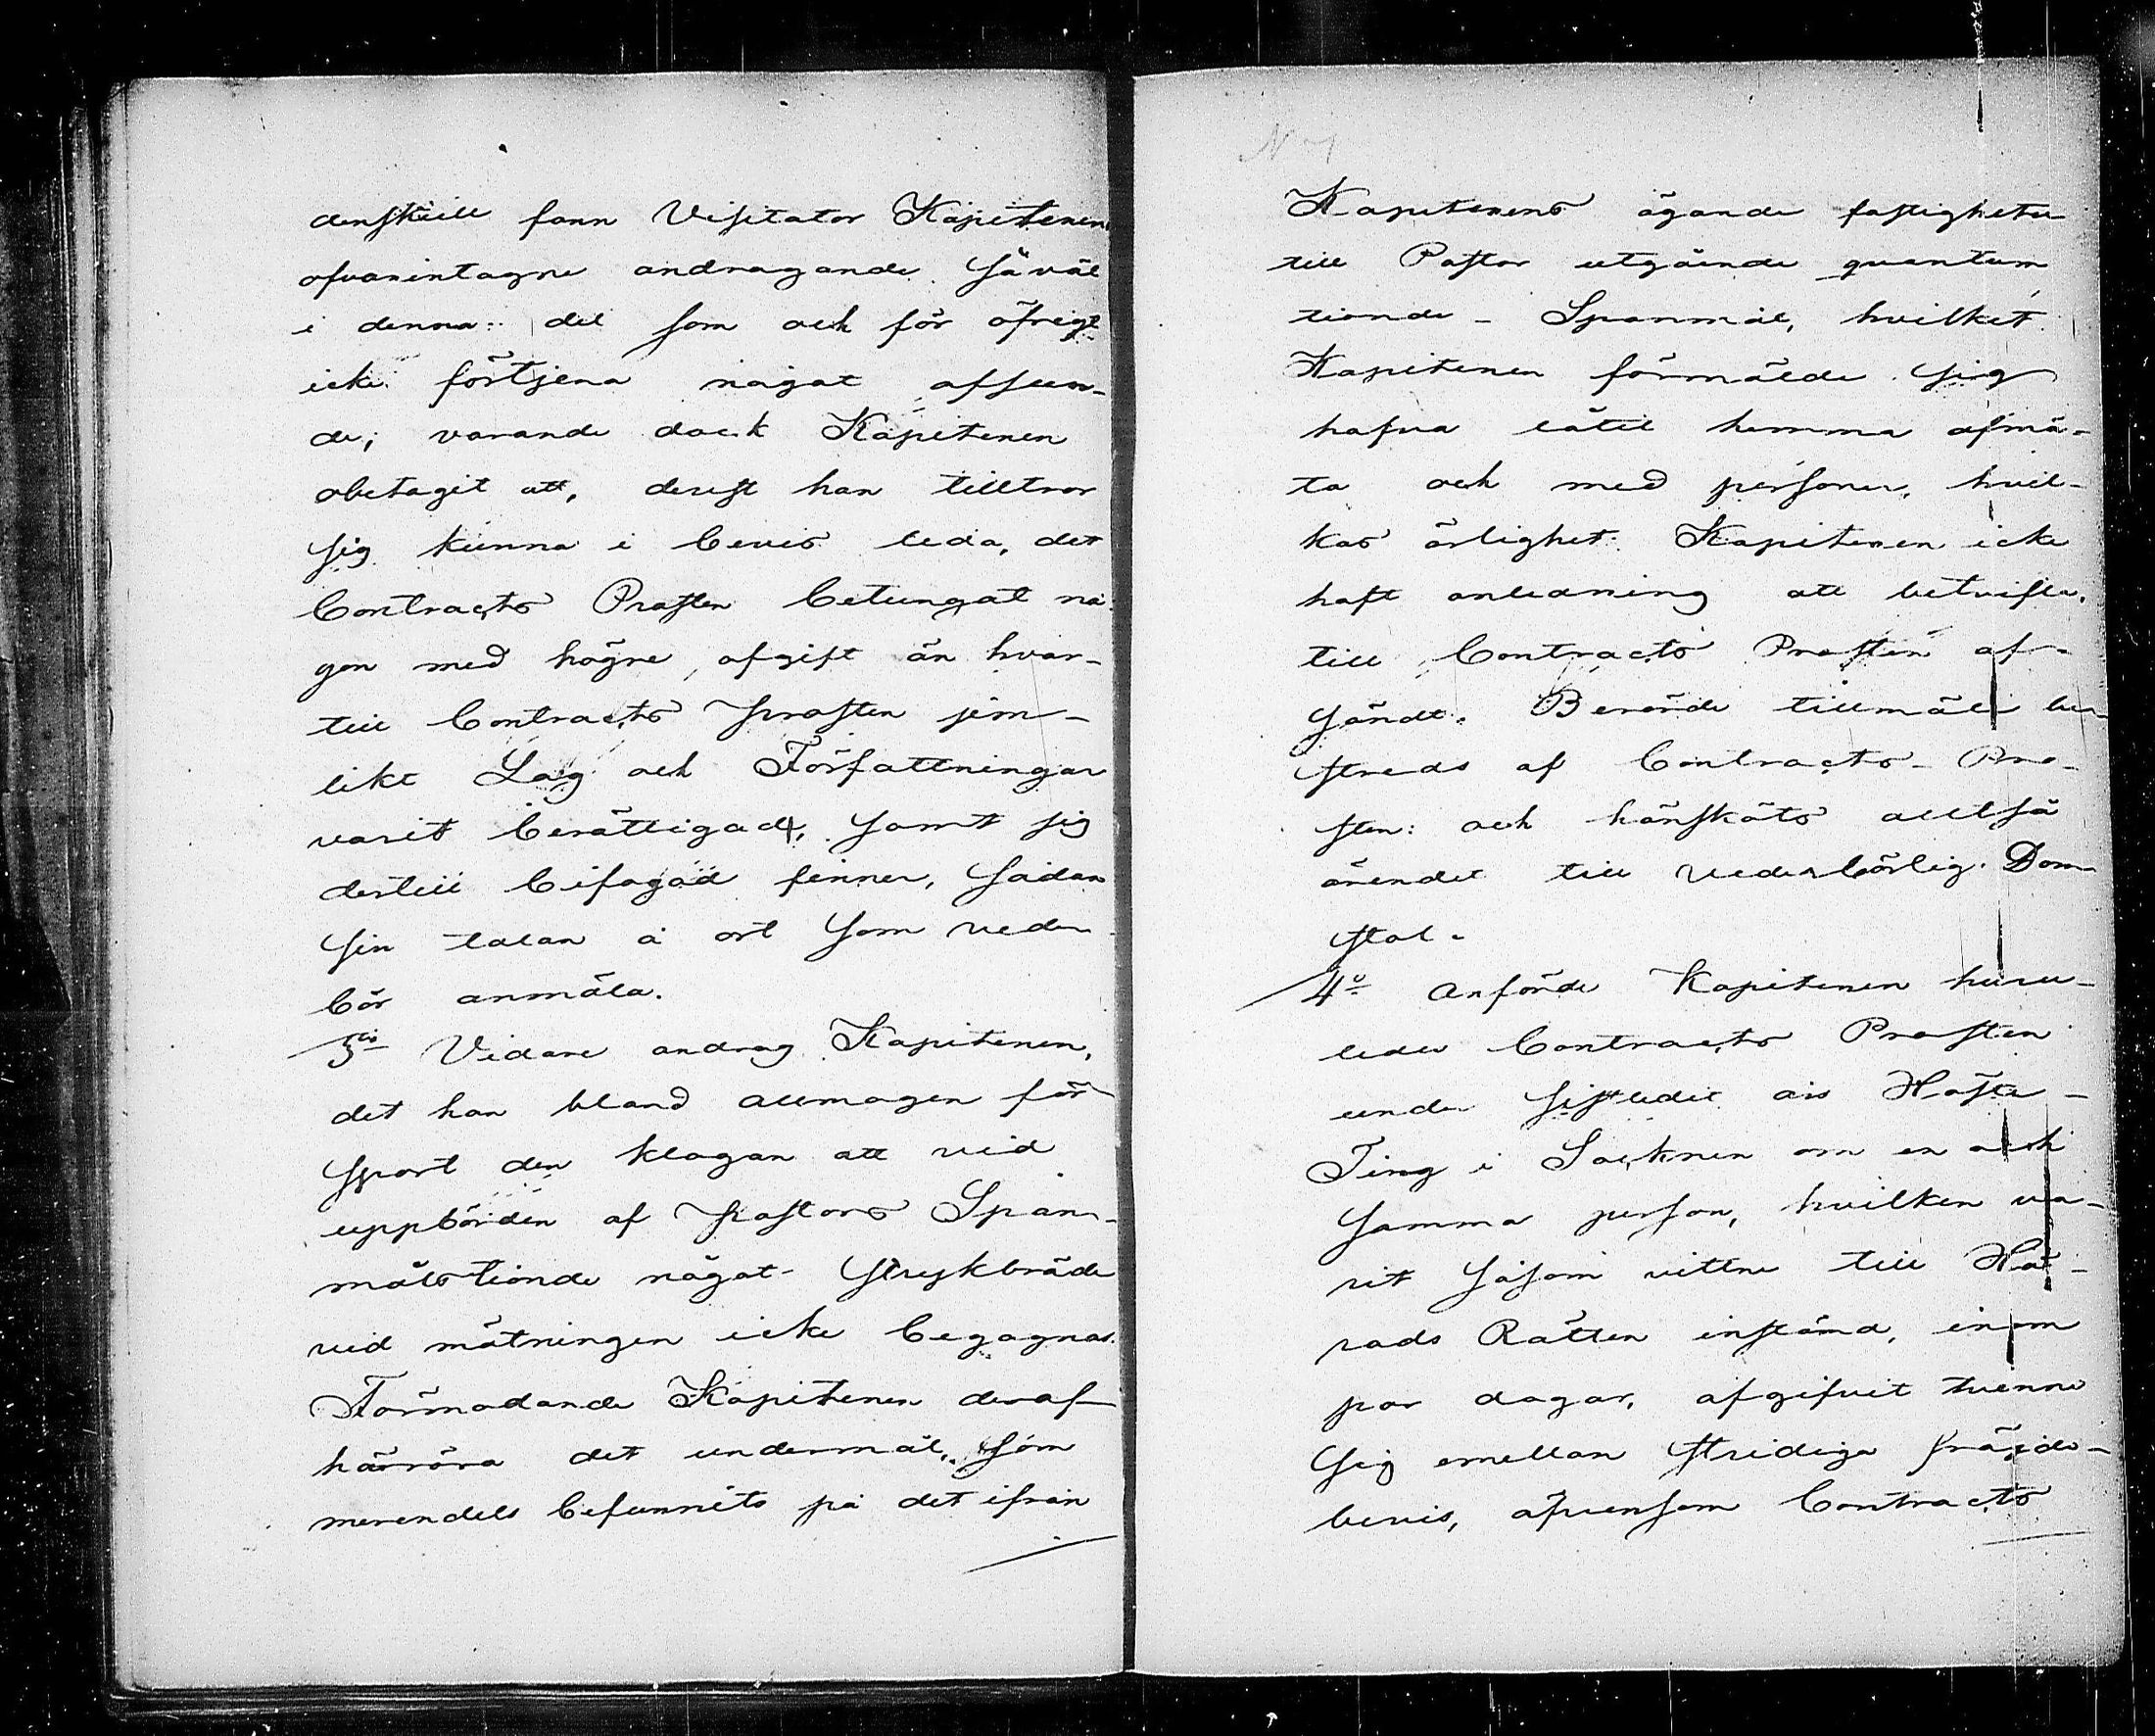 denskull fann Visitator Kapitenens
ofvanintagne andragande såväl
i denna del som och för öfrigt
icke förtjena något afseen-
de; varande dock Kapitenen
obetagit att, derest han tilltror
sig kunna i bevis leda, det
Contracts Prosten betungat nå
gon med högre afgift än hvar-
till Contracts Prosten jem-
likt Lag och Författningar
varit berättigad, samt sig
dertill befogad finner, sådan
sin talan å ort som veder
bör anmäla.
3io Vidare androg Kapitenen,
det han bland allmogen för
sport den klagan att vid
uppbörden af Pastors Span-
målstionde något strykbräde
vid mätningen icke begagnas.
Förmodande Kapitenen deraf
härröra det undermål, som
merendels befunnits på det ifrån
N 7
Kapitenens ägande fastigheter
till Pastor utgående quantum
tionde-Spanmål, hvilket
Kapitenen förmälde sig
hafva låtit hemma afmä-
ta och med personer, hvil-
kas ärlighet Kapitenen icke
haft anledning att betvifla,
till Contracts Prosten af-
sändt. Berörde tillmäle be
streds af Contracts-Pro-
sten: och hänsköts alltså
ärendet till vederbörlig Dom
stol.
4o Anförde Kapitenen huru-
ledes Contracts Prosten
under sistledit års Höste-
Ting i Socknen om en och
samma person, hvilken va-
rit såsom vittne till Hä-
rads Rätten instämd, inom
par dagar, afgifvit tvenne
sig emellan stridiga präste-
bevis, äfvensom Contracts